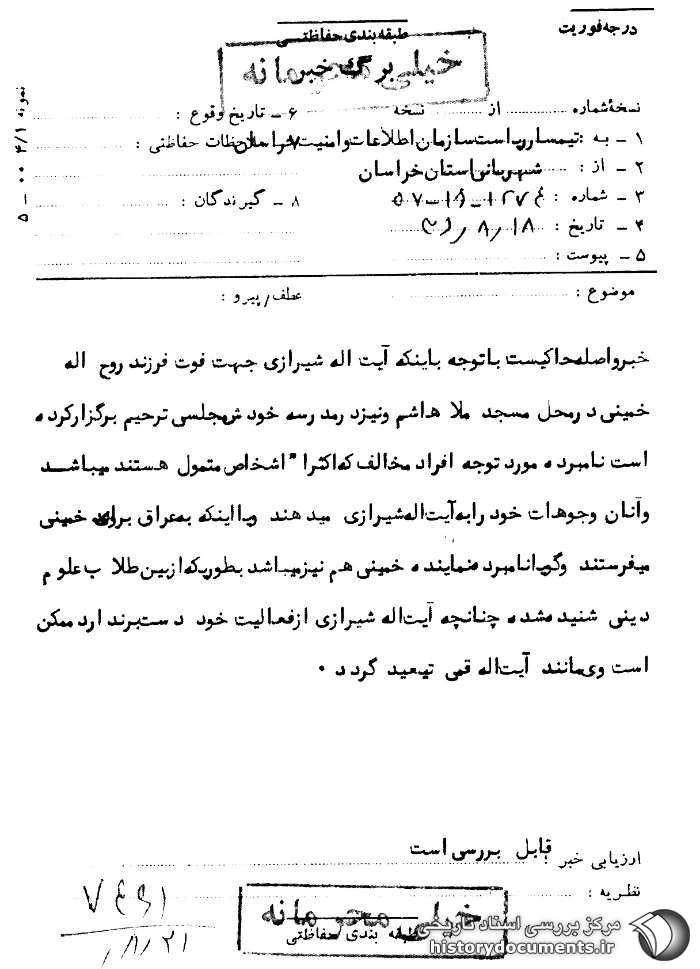 درجه فوریت
طبقه بندی حفاظتی
برگ خبر
خیلی محرمانه
نمونه
نسخهٔ شماره از نسخه ۶ ـ تاریخ وقوع :
۱ ـ به : تیمسار ریاست سازمان اطلاعات و امنیت خراسان ۷ ـ ملاحظات حفاظتی :
۲ ـ از : شهربانی استان خراسان
۳ ـ شماره : ۸ ـ گیرندگان :
۴ ـ تاریخ :
۵ ـ پیوست :
موضوع : عطف/پیرو :
خبر واصله حاکیست با توجه باینکه آیت اله شیرازی جهت فوت فرزند روح اله
خمینی در محل مسجد ملا هاشم و نیز در مدرسه خودش مجلسی ترحیم برگزار کرده
است نامبرده مورد توجه افراد مخالف که اکثرا" اشخاص متمول هستند میباشد
و آنان وجوهات خود را به آیت اله شیرازی میدهند و یا اینکه به عراق برای خمینی
میفرستند و گویا نامبرده نماینده خمینی هم نیز میباشد بطوریکه از بین طلاب علوم
دینی شنیده شده چنانچه آیت اله شیرازی از فعالیت خود دست برندارد ممکن
است وی مانند آیت اله قمی تبعید گردد ۰
ارزیابی خبر : قابل بررسی است
نظریه :
خیلی محرمانه
طبقه بندی حفاظتی
مرکز بررسی اسناد تاریخی
historydocuments.ir